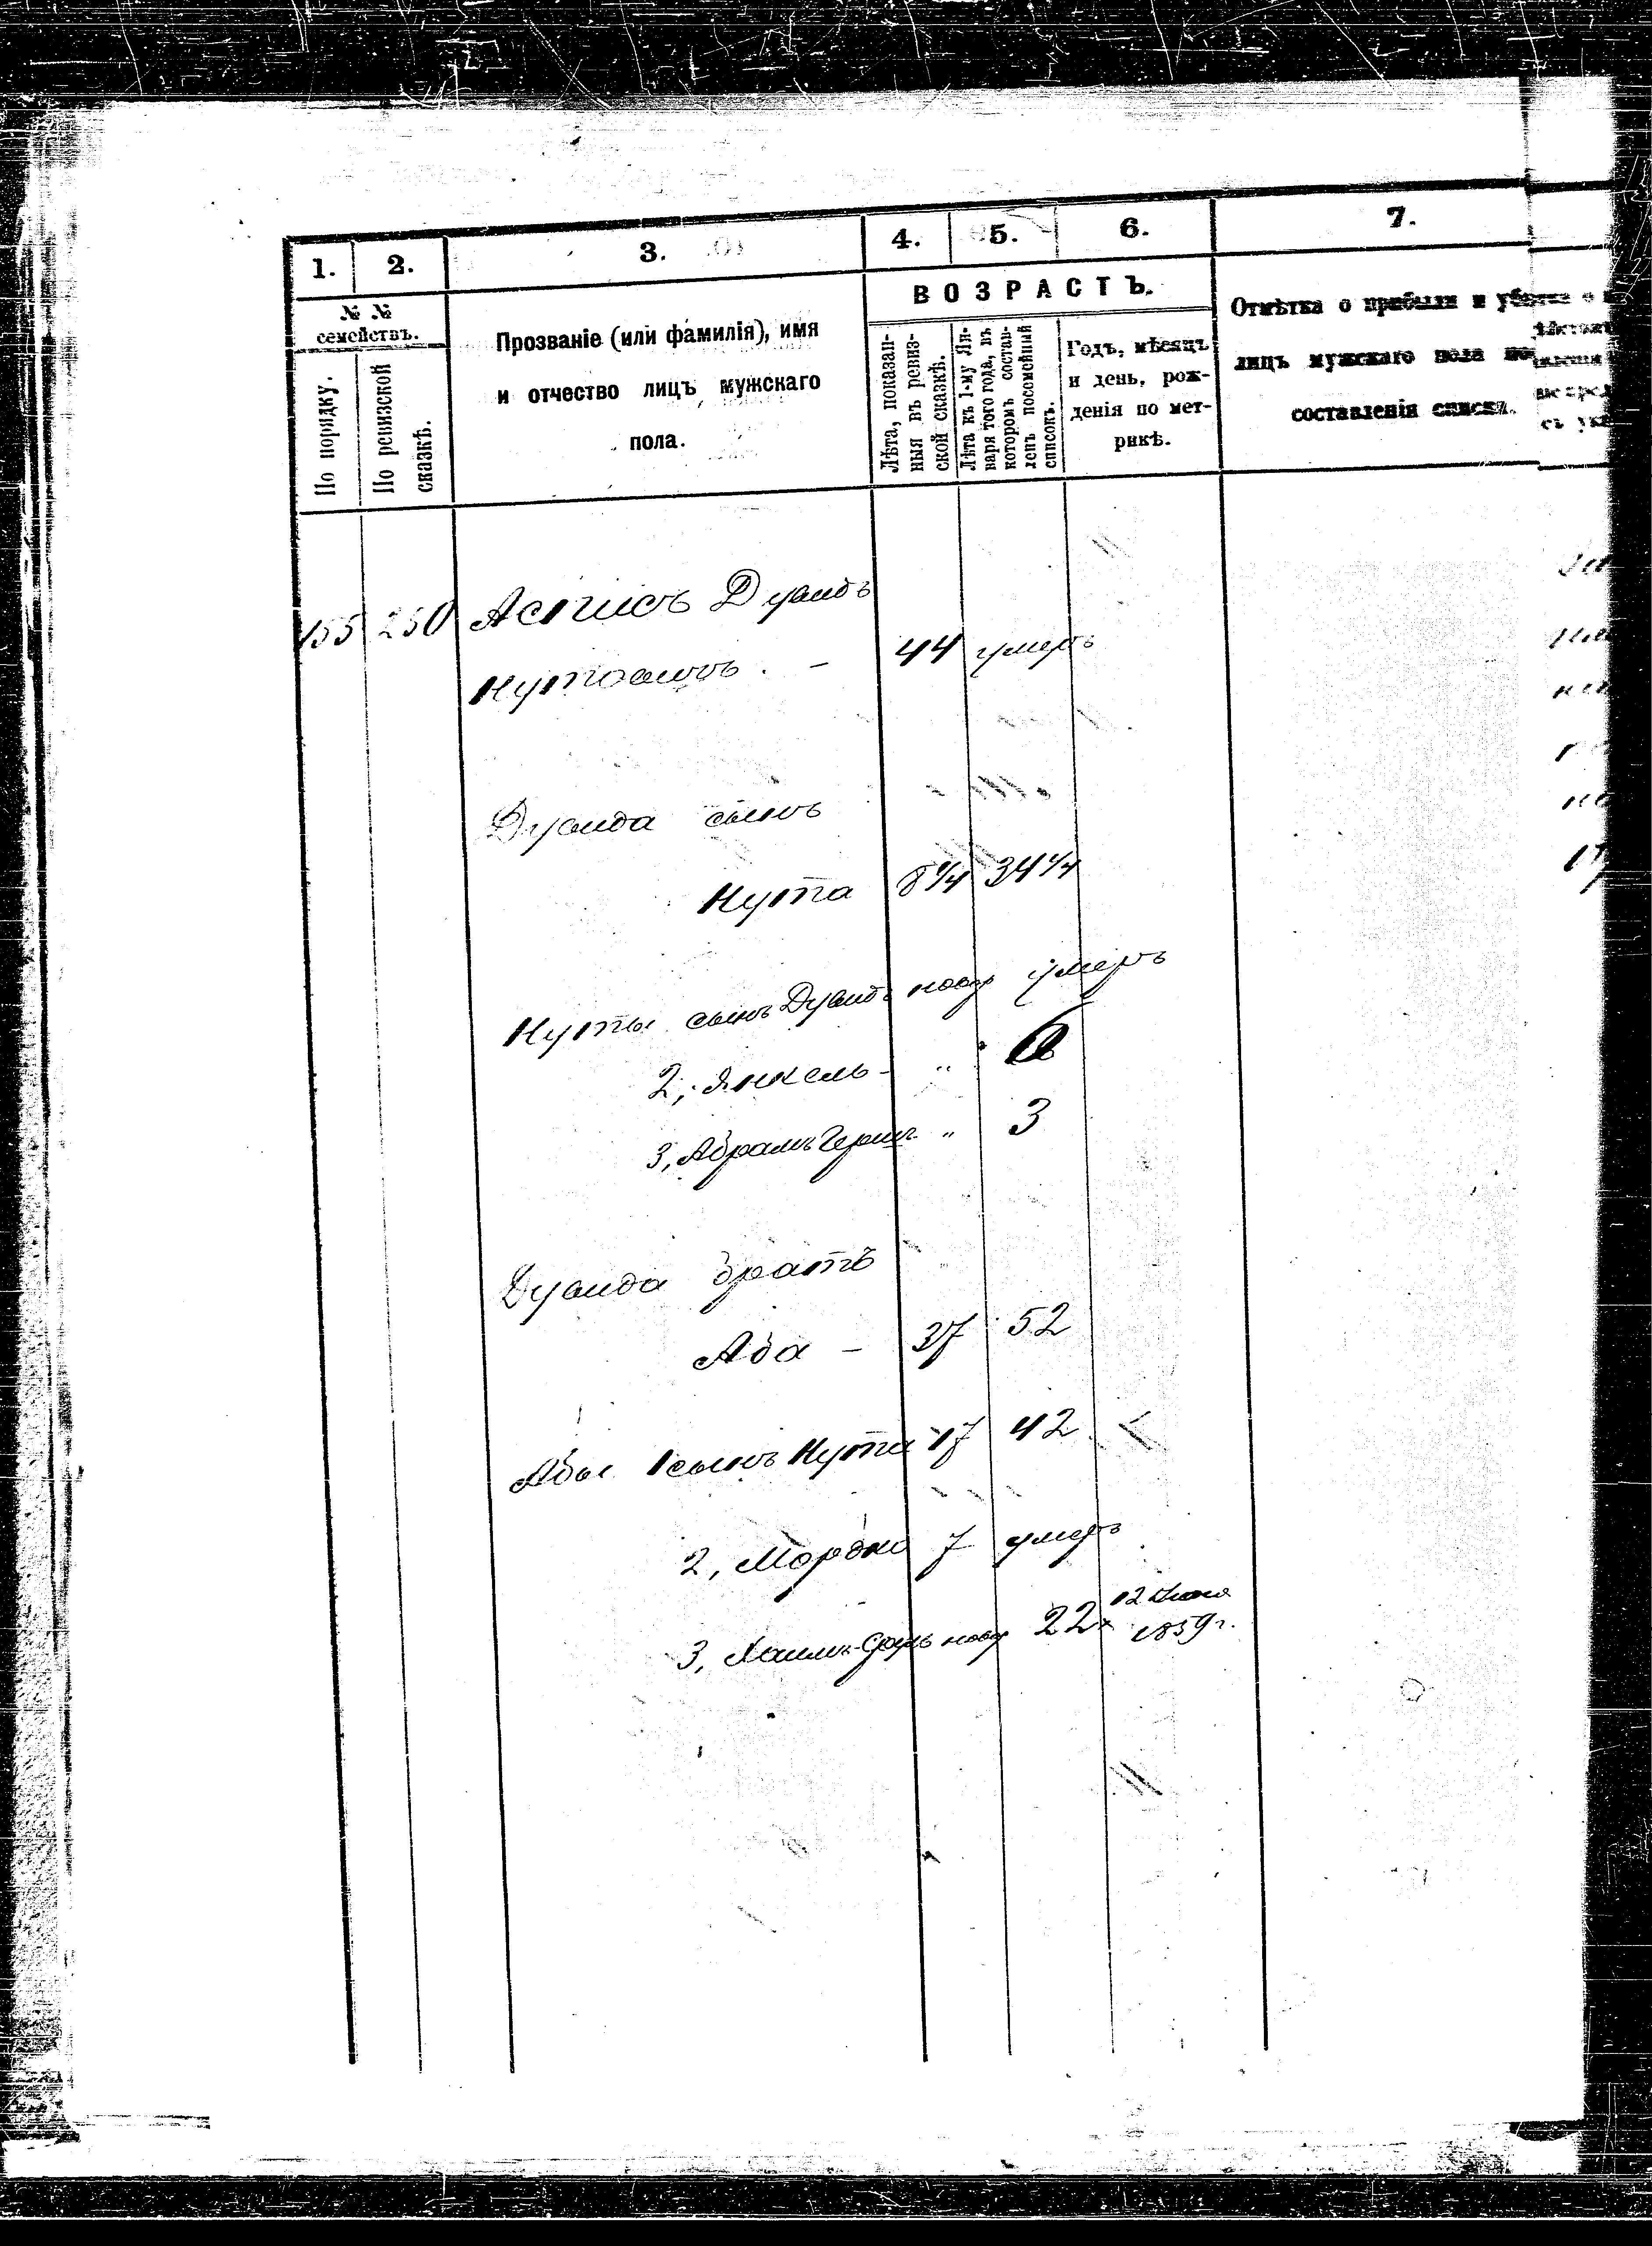 1. 2. 3. 4. 5. 6. 7.
№ №
семействъ.
По порядку.
По ревизской
сказкѣ.
Прозваніе (или фамилія), имя
и отчество лицъ мужскаго
пола.
ВОЗРАСТЪ.
Лѣта, показан-
ныя въ ревиз-
ской сказкѣ.
Лѣта къ 1-му Ян-
варя того года, въ
которомъ состав-
ленъ посемейный
списокъ.
Годъ, мѣсяцъ
и день, рож-
денія по мет-
рикѣ.
Отмѣтка о прибыли и убыли
лицъ мужскаго пола по
составленія списка.
155 250 Асписъ Дувидъ
Нутовичъ. - 44 умеръ
Дувида сынъ
Нута 8¼ 34¼
Нуты сынъ Дувидъ новор умеръ
2, Янкель - "
3, Абрамъ Герш " 3
Дувида братъ
Аба - 37 52
Абы 1 сынъ Нута 17 42
2, Мордко 7 умеръ
3, Хаимъ новор 22
1859 г.